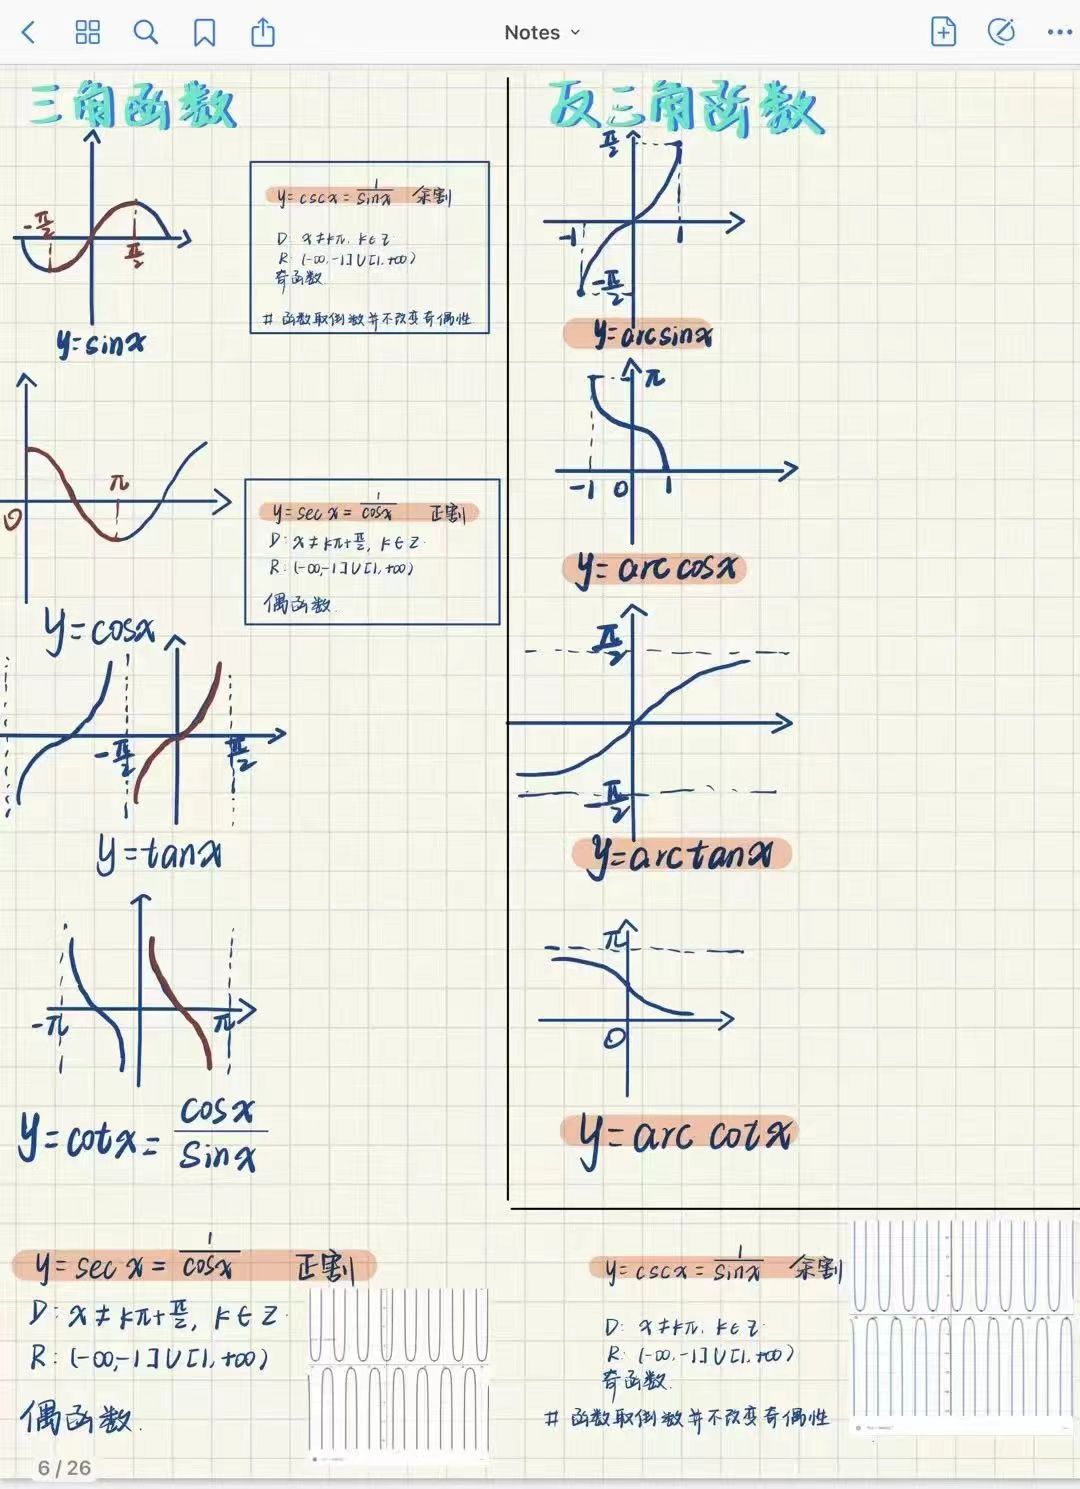 Notes
三角函数
-π/2
π/2
y=sinx
y=cscx=1/sinx 余割
D: x≠kπ, k∈Z
R: (-∞,-1]∪[1,+∞)
奇函数
# 函数取倒数并不改变奇偶性
0
π
y=cosx
y=secx=1/cosx 正割
D: x≠kπ+π/2, k∈Z
R: (-∞,-1]∪[1,+∞)
偶函数.
-π/2
π/2
y=tanx
-π
π
y=cotx=cosx/sinx
反三角函数
π/2
-1
1
-π/2
y=arcsinx
π
-1 0 1
y=arccosx
π/2
-π/2
y=arctanx
π
0
y=arccotx
y=secx=1/cosx 正割
D: x≠kπ+π/2, k∈Z
R: (-∞,-1]∪[1,+∞)
偶函数.
y=cscx=1/sinx 余割
D: x≠kπ, k∈Z
R: (-∞,-1]∪[1,+∞)
奇函数.
# 函数取倒数并不改变奇偶性
6 / 26